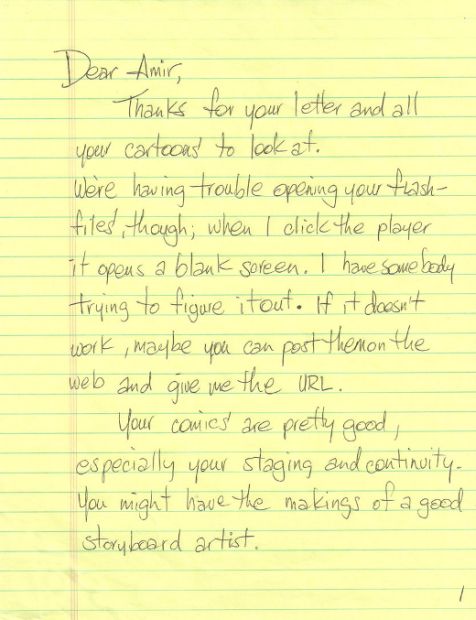 Dear Amir,
Thanks for your letter and all
your cartoons to look at.
We're having trouble opening your flash-
files, though; when I click the player
it opens a blank screen. I have somebody
trying to figure it out. If it doesn't
work, maybe you can post them on the
web and give me the URL.
Your comics are pretty good,
especially your staging and continuity.
You might have the makings of a good
storyboard artist.
1